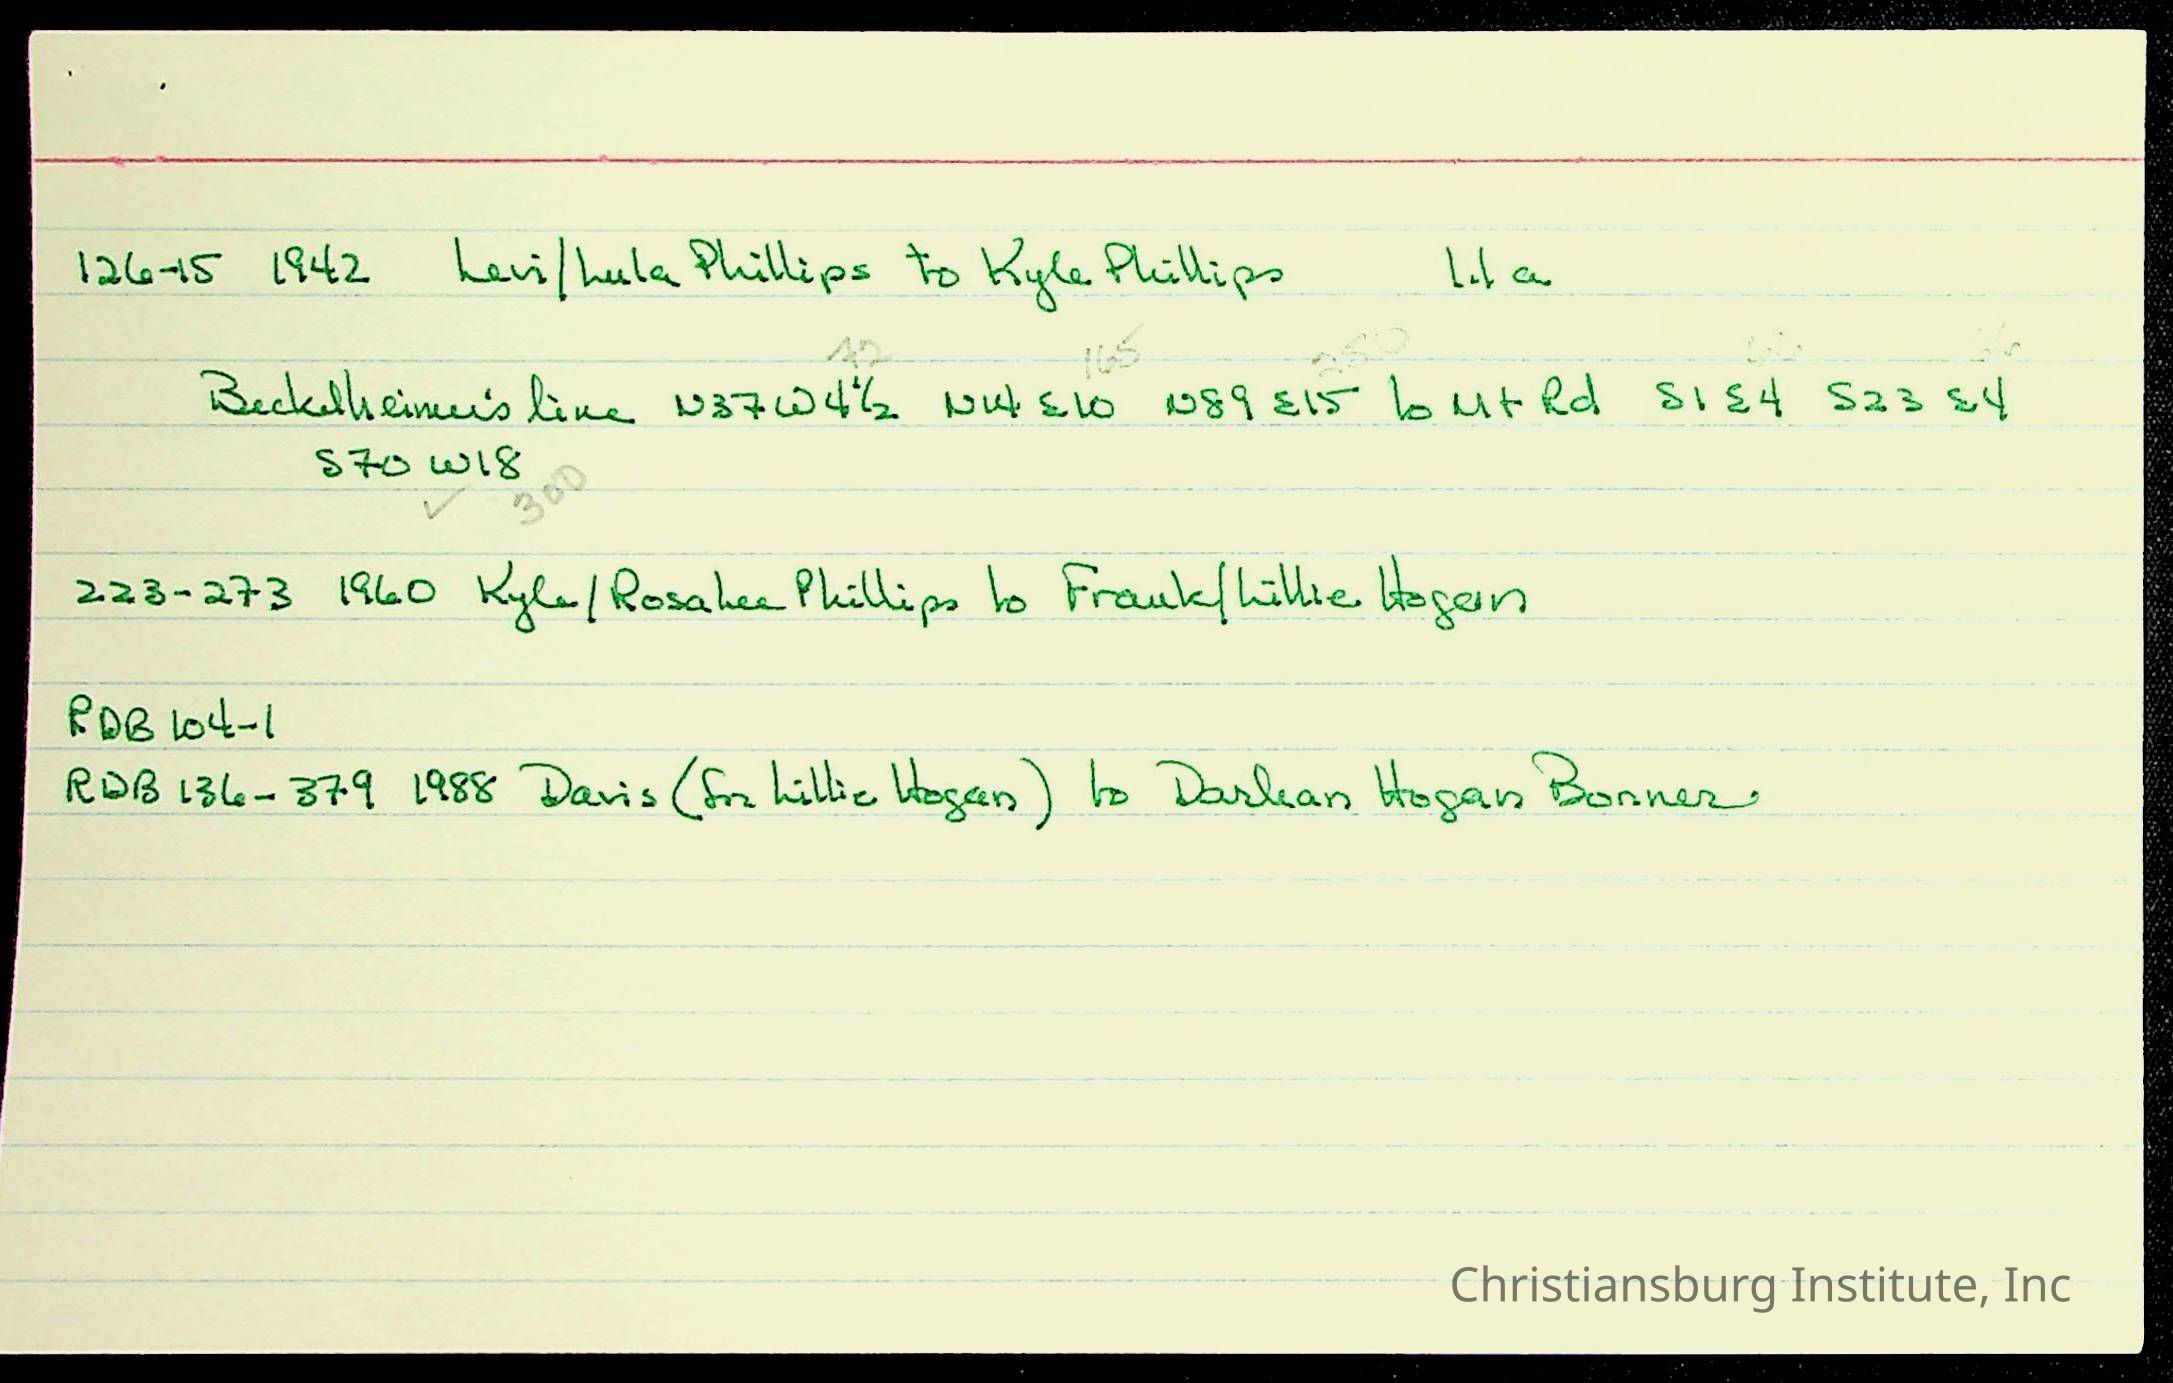 126-15 1942 Levi/Lula Phillips to Kyle Phillips 1.1 a
165 250
Beckelheimer's line N37W4½ N14E10 N89E15 to Mt Rd S1E4 S23E4
S70W18
✓ 300
223-273 1960 Kyle/Rosalee Phillips to Frank/Lillie Hogan
RDB 104-1
RDB 136-379 1988 Davis (for Lillie Hogan) to Darlean Hogan Bonner
Christiansburg Institute, Inc